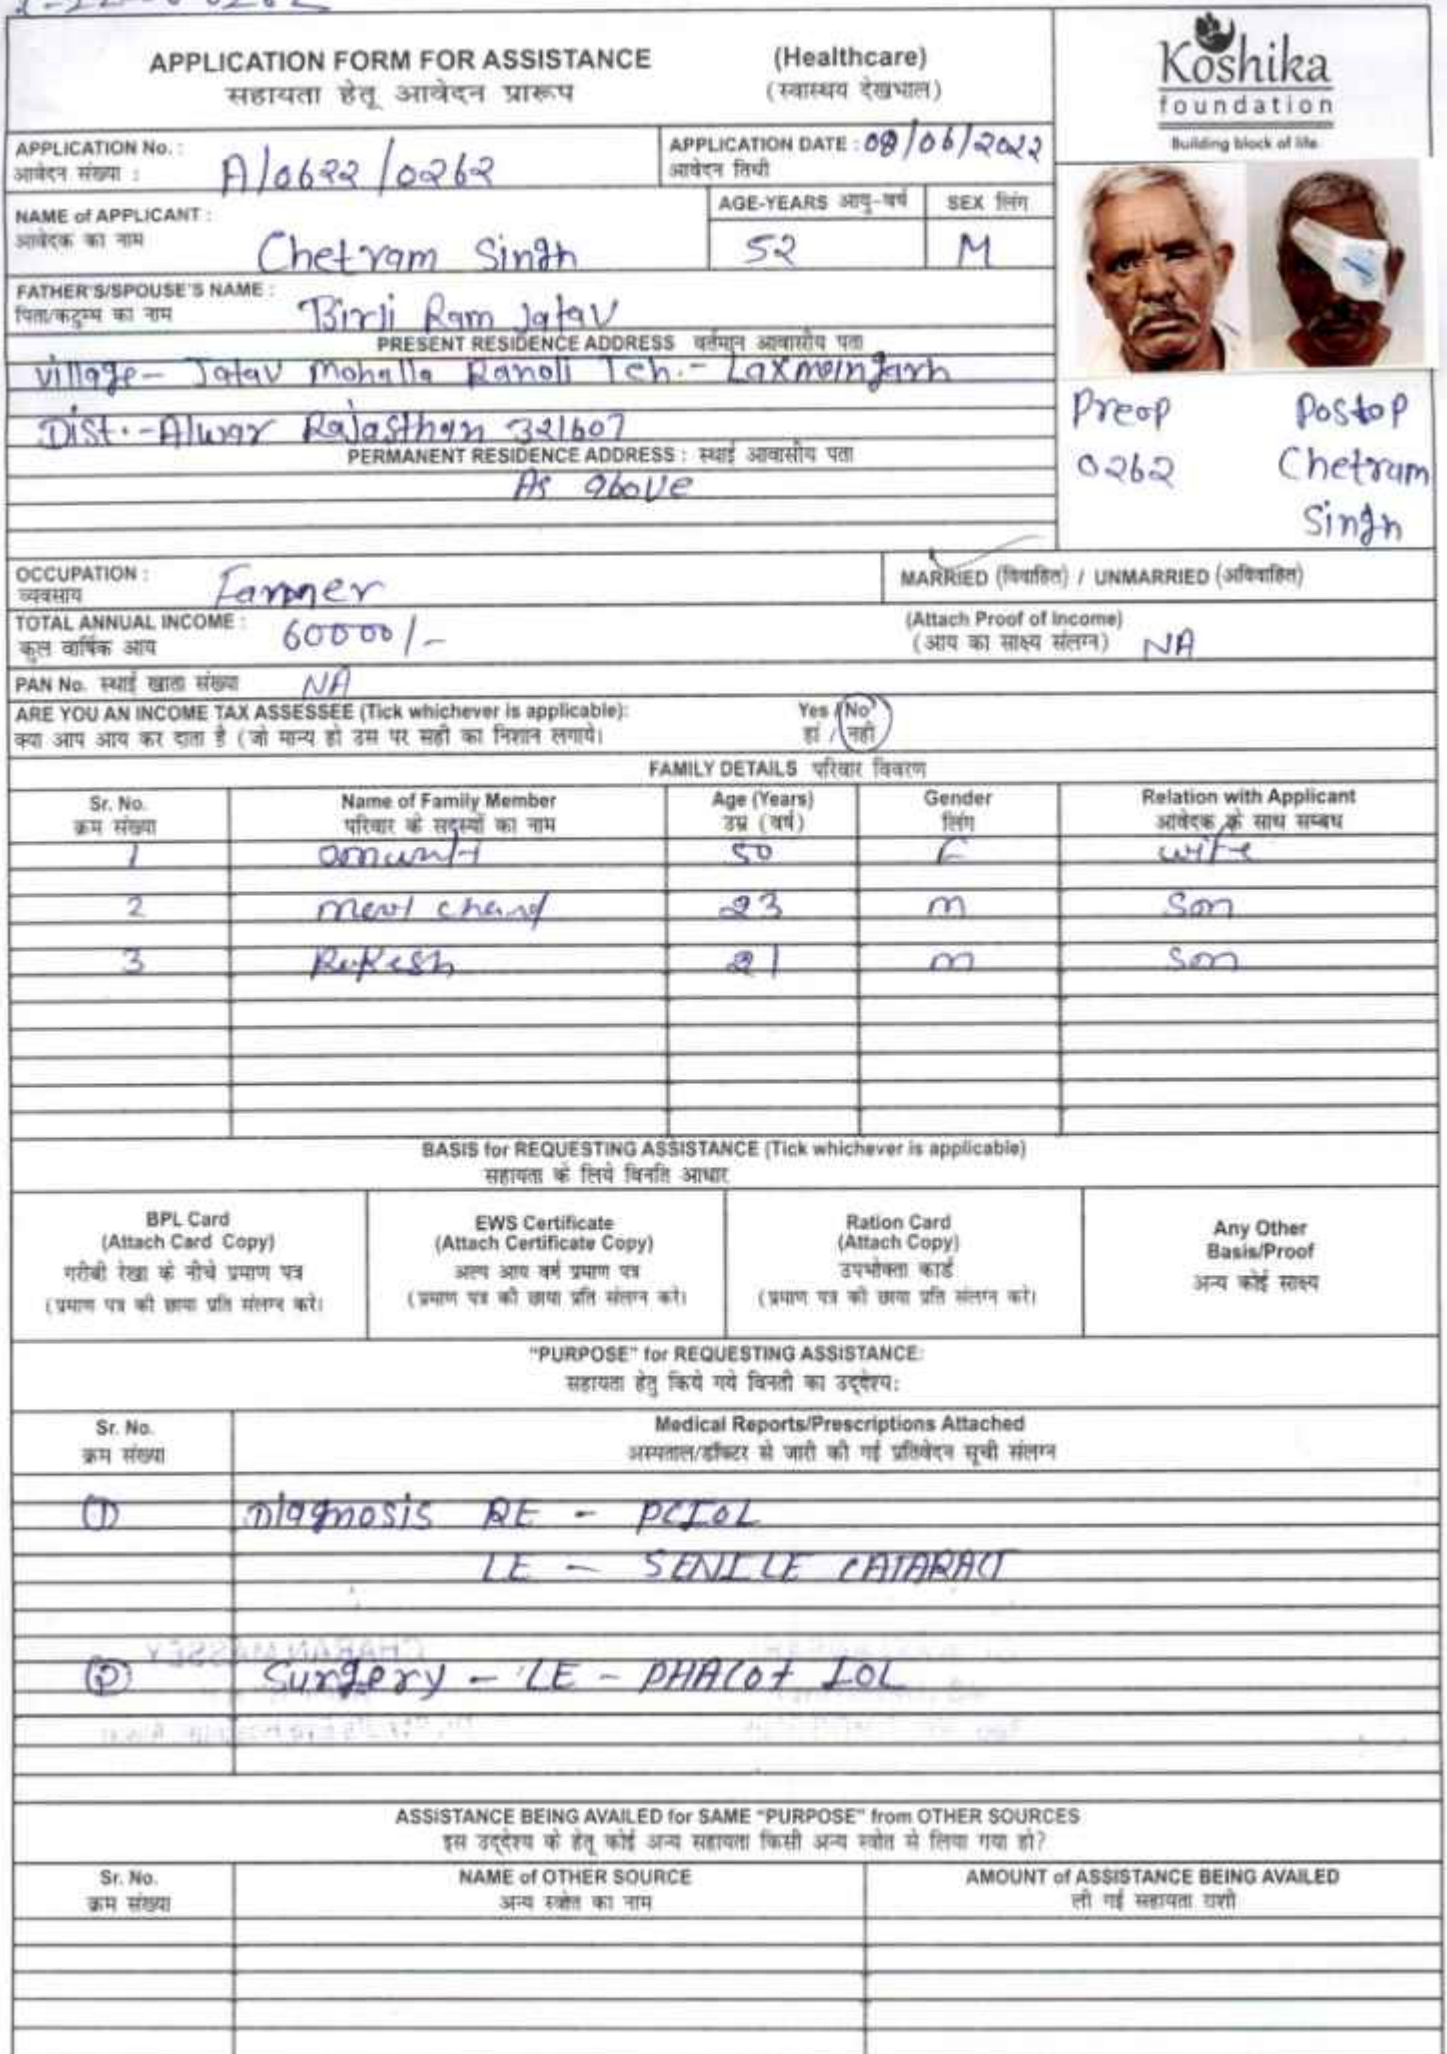 APPLICATION FORM FOR ASSISTANCE (Healthcare)
सहायता हेतू आवेदन प्रारूप (स्वास्थय देखभाल)
Koshika
foundation
Building block of life
APPLICATION No. : A/0622/0262
आवेदन संख्या :
APPLICATION DATE : 08/06/2022
आवेदन तिथी
NAME of APPLICANT : Chetram Singh
आवेदक का नाम
AGE-YEARS आयु-वर्ष 52
SEX लिंग M
FATHER'S/SPOUSE'S NAME : Birji Ram Jatav
पिता/कटुम्ब का नाम
PRESENT RESIDENCE ADDRESS वर्तमान आवासीय पता
Village- Jatav Mohalla Ranoli Teh.-
Dist.-Alwar Rajasthan 321607
PERMANENT RESIDENCE ADDRESS : स्थाई आवासीय पता
As above
Preop Postop
0262 Chetram
Singh
OCCUPATION : Farmer
व्यवसाय
MARRIED (विवाहित) / UNMARRIED (अविवाहित)
TOTAL ANNUAL INCOME : 60000/-
कुल वार्षिक आय
(Attach Proof of Income)
(आय का साक्ष्य संलग्न) NA
PAN No. स्थाई खाता संख्या NA
ARE YOU AN INCOME TAX ASSESSEE (Tick whichever is applicable): Yes / No
क्या आप आय कर दाता है (जो मान्य हो उस पर सही का निशान लगाये। हां / नही
FAMILY DETAILS परिवार विवरण
Sr. No. Name of Family Member Age (Years) Gender Relation with Applicant
क्रम संख्या परिवार के सदस्यों का नाम उम्र (वर्ष) लिंग आवेदक के साथ सम्बध
1 50 F wife
2 chand 23 m Son
3 21 m Son
BASIS for REQUESTING ASSISTANCE (Tick whichever is applicable)
सहायता के लिये विनति आधार
BPL Card
(Attach Card Copy)
गरीबी रेखा के नीचे प्रमाण पत्र
(प्रमाण पत्र की छाया प्रति संलग्न करे।
EWS Certificate
(Attach Certificate Copy)
अल्प आय वर्ग प्रमाण पत्र
(प्रमाण पत्र की छाया प्रति संलग्न करे।
Ration Card
(Attach Copy)
उपभोक्ता कार्ड
(प्रमाण पत्र की छाया प्रति संलग्न करे।
Any Other
Basis/Proof
अन्य कोई साक्ष्य
"PURPOSE" for REQUESTING ASSISTANCE:
सहायता हेतु किये गये विनती का उद्देश्य:
Sr. No. Medical Reports/Prescriptions Attached
क्रम संख्या अस्पताल/डॉक्टर से जारी की गई प्रतिवेदन सूची संलग्न
(1) Diagnosis RE - PCIOL
LE - SENILE CATARACT
(2) Surgery - LE - PHACO+ IOL
ASSISTANCE BEING AVAILED for SAME "PURPOSE" from OTHER SOURCES
इस उद्देश्य के हेतू कोई अन्य सहायता किसी अन्य स्त्रोत से लिया गया हो?
Sr. No. NAME of OTHER SOURCE AMOUNT of ASSISTANCE BEING AVAILED
क्रम संख्या अन्य स्त्रोत का नाम ली गई सहायता राशी